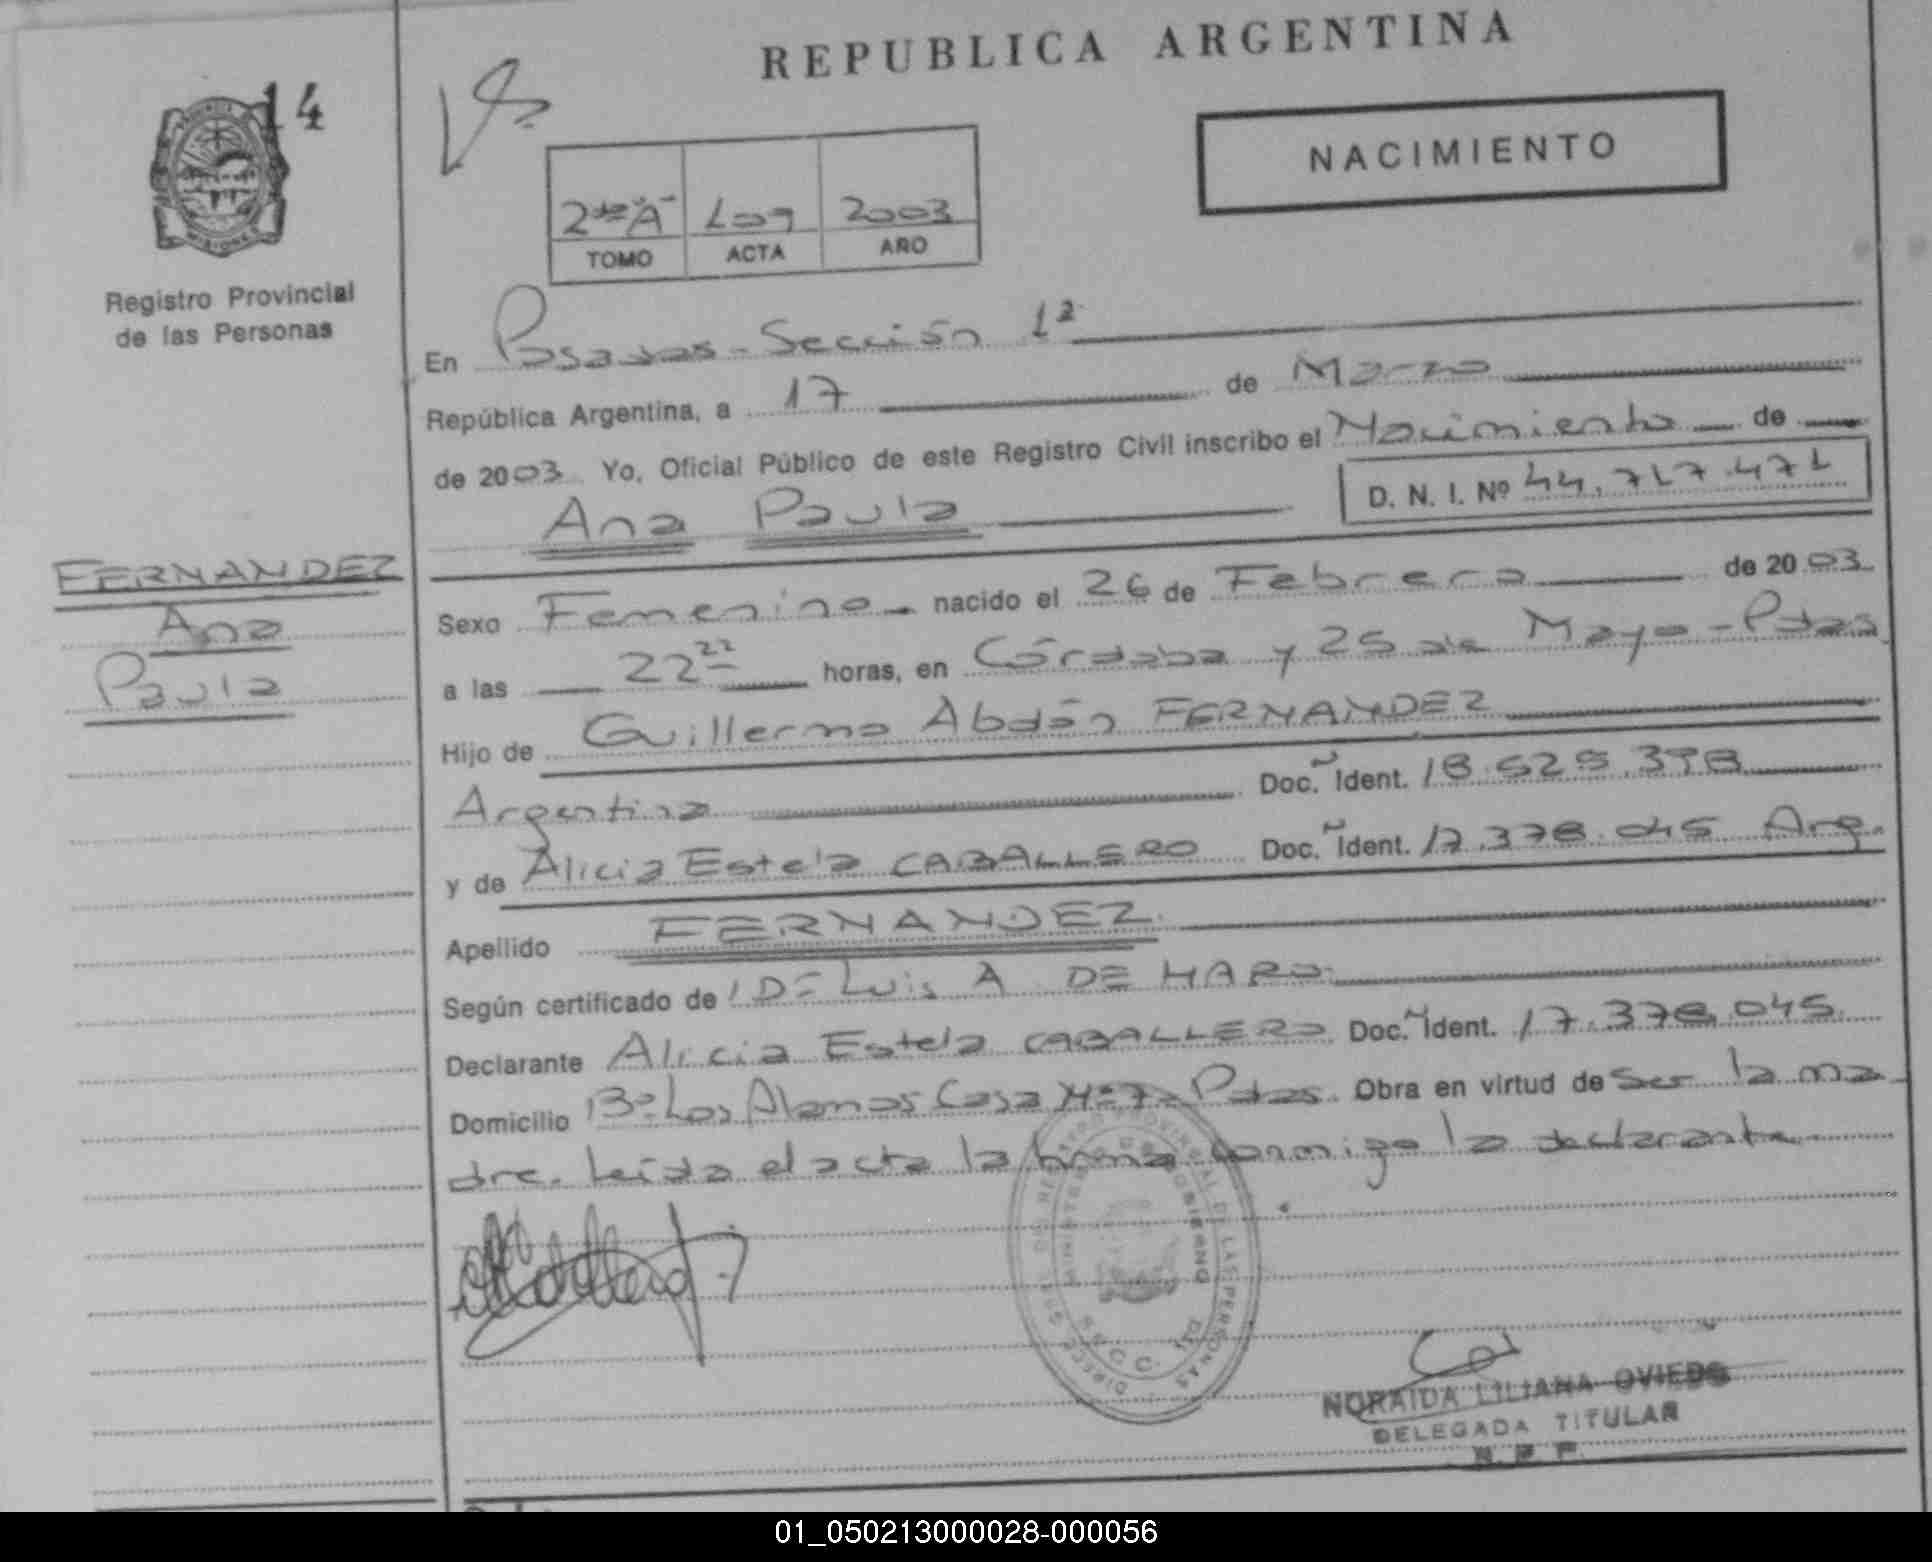 REPUBLICA ARGENTINA
14
NACIMIENTO
2do "A" 109 2003
TOMO ACTA AÑO
Registro Provincial
de las Personas
En Posadas - Sección 1ª
República Argentina, a 17 de Marzo
de 2003 Yo, Oficial Público de este Registro Civil inscribo el Nacimiento de
Ana Paula
D. N. I. Nº 44.717.471
FERNANDEZ
Ana
Paula
Sexo Femenino nacido el 26 de Febrero de 2003
a las 22 22 horas, en Córdoba y 25 de Mayo - Pdas
Hijo de Guillermo Abdón FERNANDEZ
Argentina Doc. Ident. 18.525.398
y de Alicia Estela CABALLERO Doc. Ident. 17.378.045 Arg.
Apellido FERNANDEZ
Según certificado de Dr Luis A. DE HARO
Declarante Alicia Estela CABALLERO Doc. Ident. 17.378.045
Domicilio Bº Los Alamos Casa Nº 7 - Pdas. Obra en virtud de ser la ma
dre. Leída el acta la firma conmigo la declarante
NORAIDA LILIANA OVIEDO
DELEGADA TITULAR
R. P. P.
01_050213000028-000056